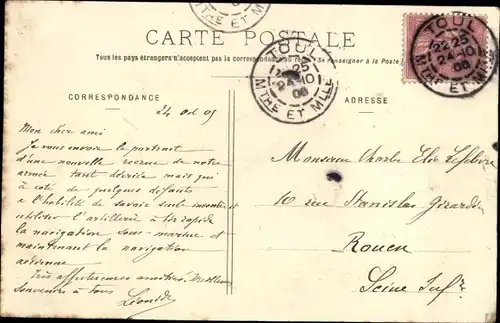 MTHE ET MLLE
CARTE POSTALE
Tous les pays étrangers n'acceptent pas la correspondance au recto. (Se renseigner à la Poste.)
TOUL
22 25
24-10
08
MTHE ET MLLE
TOUL
22 25
24-10
08
MTHE ET MLLE
CORRESPONDANCE
ADRESSE
24 Oct 08
Mon cher ami
Je vous envoie le portrait
d'une nouvelle recrue de notre
armée tant décriée mais qui
à coté de quelques défauts
a l'habilité de savoir seule inventer et
utiliser l'artillerie à tir rapide
la navigation sous-marine et
maintenant la navigation
aérienne
Très affectueuses amitiés. Meilleurs
souvenirs à tous Léonide
Monsieur Charles Elie Lefebvre
10 rue Stanislas Girardin
Rouen
Seine Infre